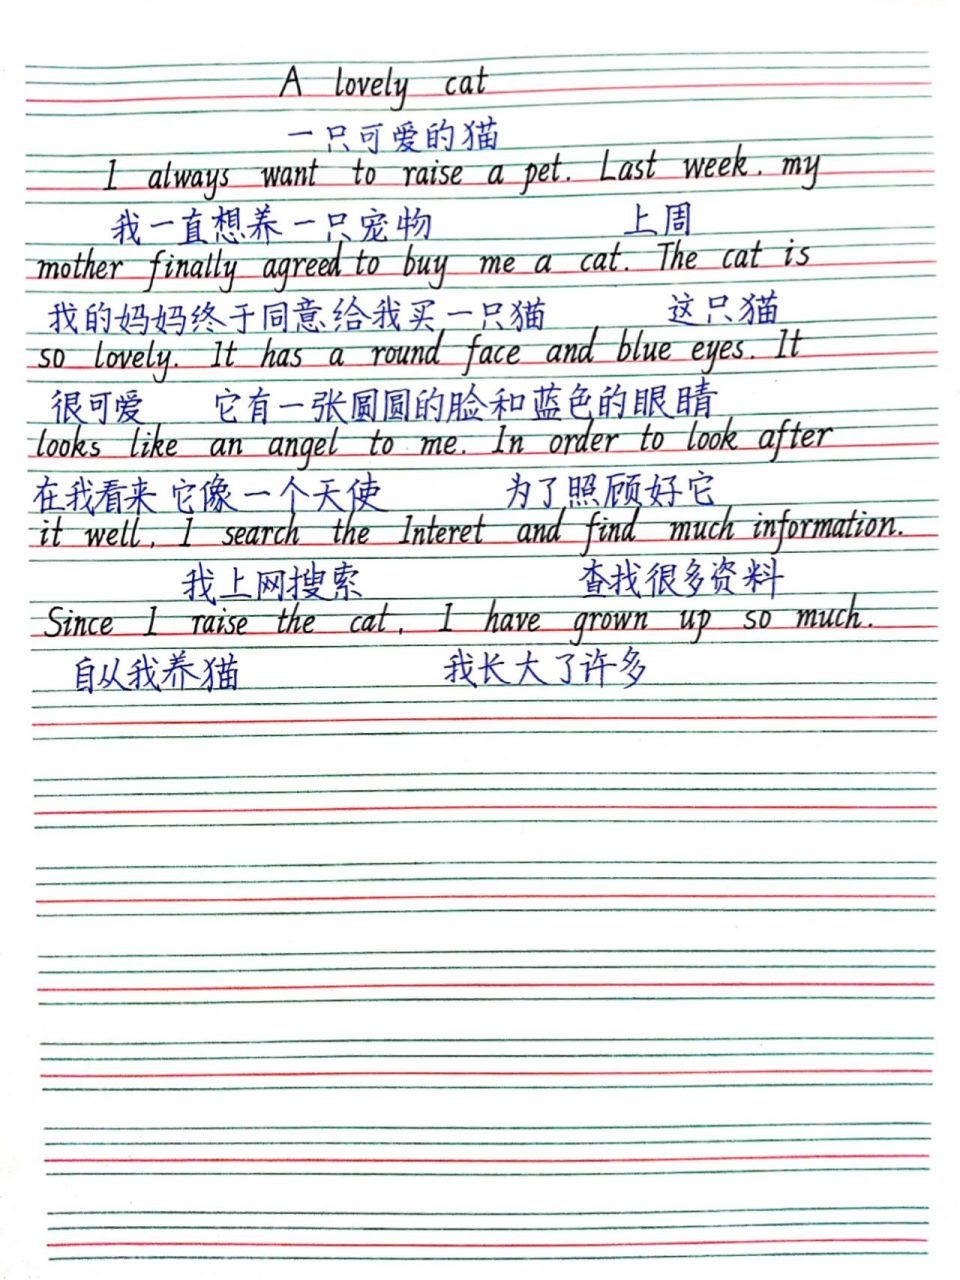 A lovely cat
一只可爱的猫
I always want to raise a pet. Last week, my
我一直想养一只宠物 上周
mother finally agreed to buy me a cat. The cat is
我的妈妈终于同意给我买一只猫 这只猫
so lovely. It has a round face and blue eyes. It
很可爱 它有一张圆圆的脸和蓝色的眼睛
looks like an angel to me. In order to look after
在我看来 它像一个天使 为了照顾好它
it well, I search the Interet and find much information.
我上网搜索 查找很多资料
Since I raise the cat, I have grown up so much.
自从我养猫 我长大了许多